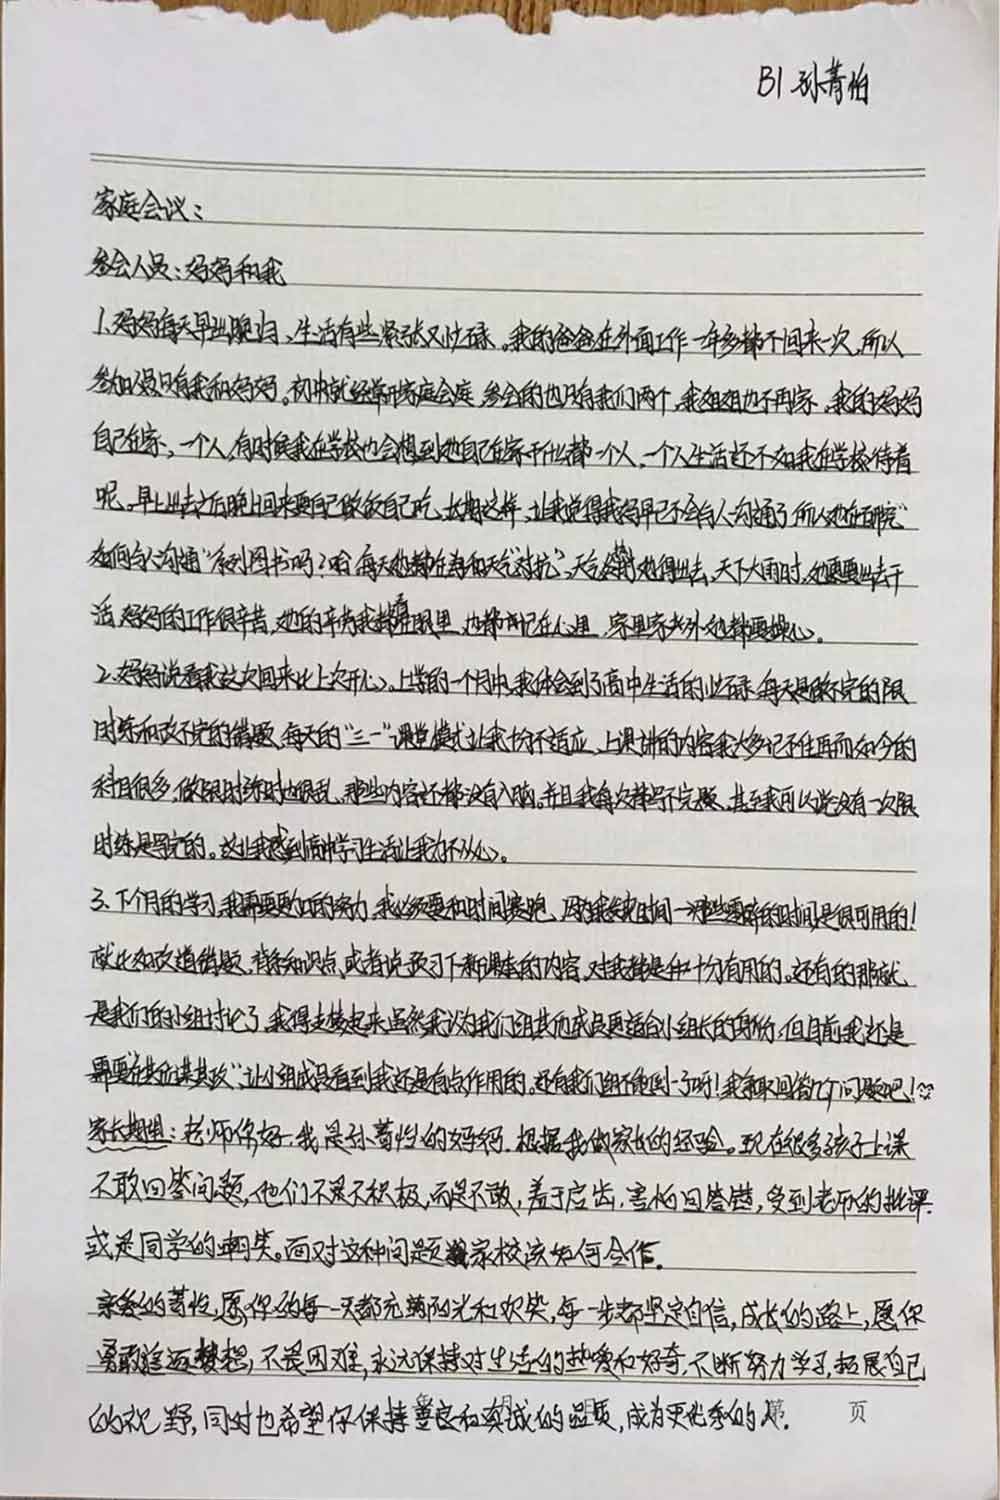 B1 孙菁怡
家庭会议：
参会人员：妈妈和我
1.妈妈每天早出晚归、生活有些紧张又忙碌。我的爸爸在外面工作一年多都不回来一次，所以
参加人员只有我和妈妈。初中就经常开家庭会庭 参会的也只有我们两个，我姐姐也不再家，我的妈妈
自己在家，一个人，有时候我在学校也会想到她自己在家干什么都一个人，一个人生活还不如我在学校待着
呢。早上出去之后晚上回来要自己做饭自己吃，长期这样，让我觉得我妈早已不会与人沟通了所以她在研究“
如何与人沟通”系列图书吗？哈 每天她都在为和天气“对抗”，天气 她得出去，天下大雨时，她要出去干
活，妈妈的工作很辛苦，她的辛劳我都看在眼里，也都 记在心里，家里家外她都要操心。
2.妈妈说看我这次回来比上次开心。上学的一个月中，我体会到了高中生活的忙碌，每天是做不完的限
时练和改不完的错题，每天的“三一”课堂模式让我十分不适应，上课讲的内容我大多记不住再而如今的
科目很多，做限时练时也很乱，那些内容还都没有入脑。并且我每次都写不完题，甚至我可以说没有一次限
时练是写完的。这让我感到高中学习生活让我力不从心。
3.下个月的学习，我需要更加的努力，我必须要和时间赛跑，因为我 时间一那些零碎的时间是很可用的！
就比如改道错题，背条知识点，或者说预习下新课堂的内容，对我都是 十分有用的。还有的那就
是我们的小组讨论了，我得支楞起来虽然我认为我们组其他成员更适合小组长的身份，但目前我还是
需要“在其位谋其政”，让小组成员看到我还是有点作用的。还有我们组不能倒一了呀！我争取回答几个问题吧！
家长期望：老师你好，我是孙菁怡的妈妈，根据我做家长的经验。现在很多孩子上课
不敢回答问题，他们不是不积极，而是不敢，羞于启齿，害怕回答错，受到老师的批评，
或是同学的嘲笑。面对这种问题 家校该如何合作。
亲爱的菁怡，愿你的每一天都充满阳光和欢笑，每一步都坚定自信，成长的路上，愿你
勇敢追逐梦想，不畏困难，永远保持对生活的热爱和好奇，不断努力学习，拓展自己
的视野，同时也希望你保持善良和真诚的品质，成为更优秀的人。
第 页